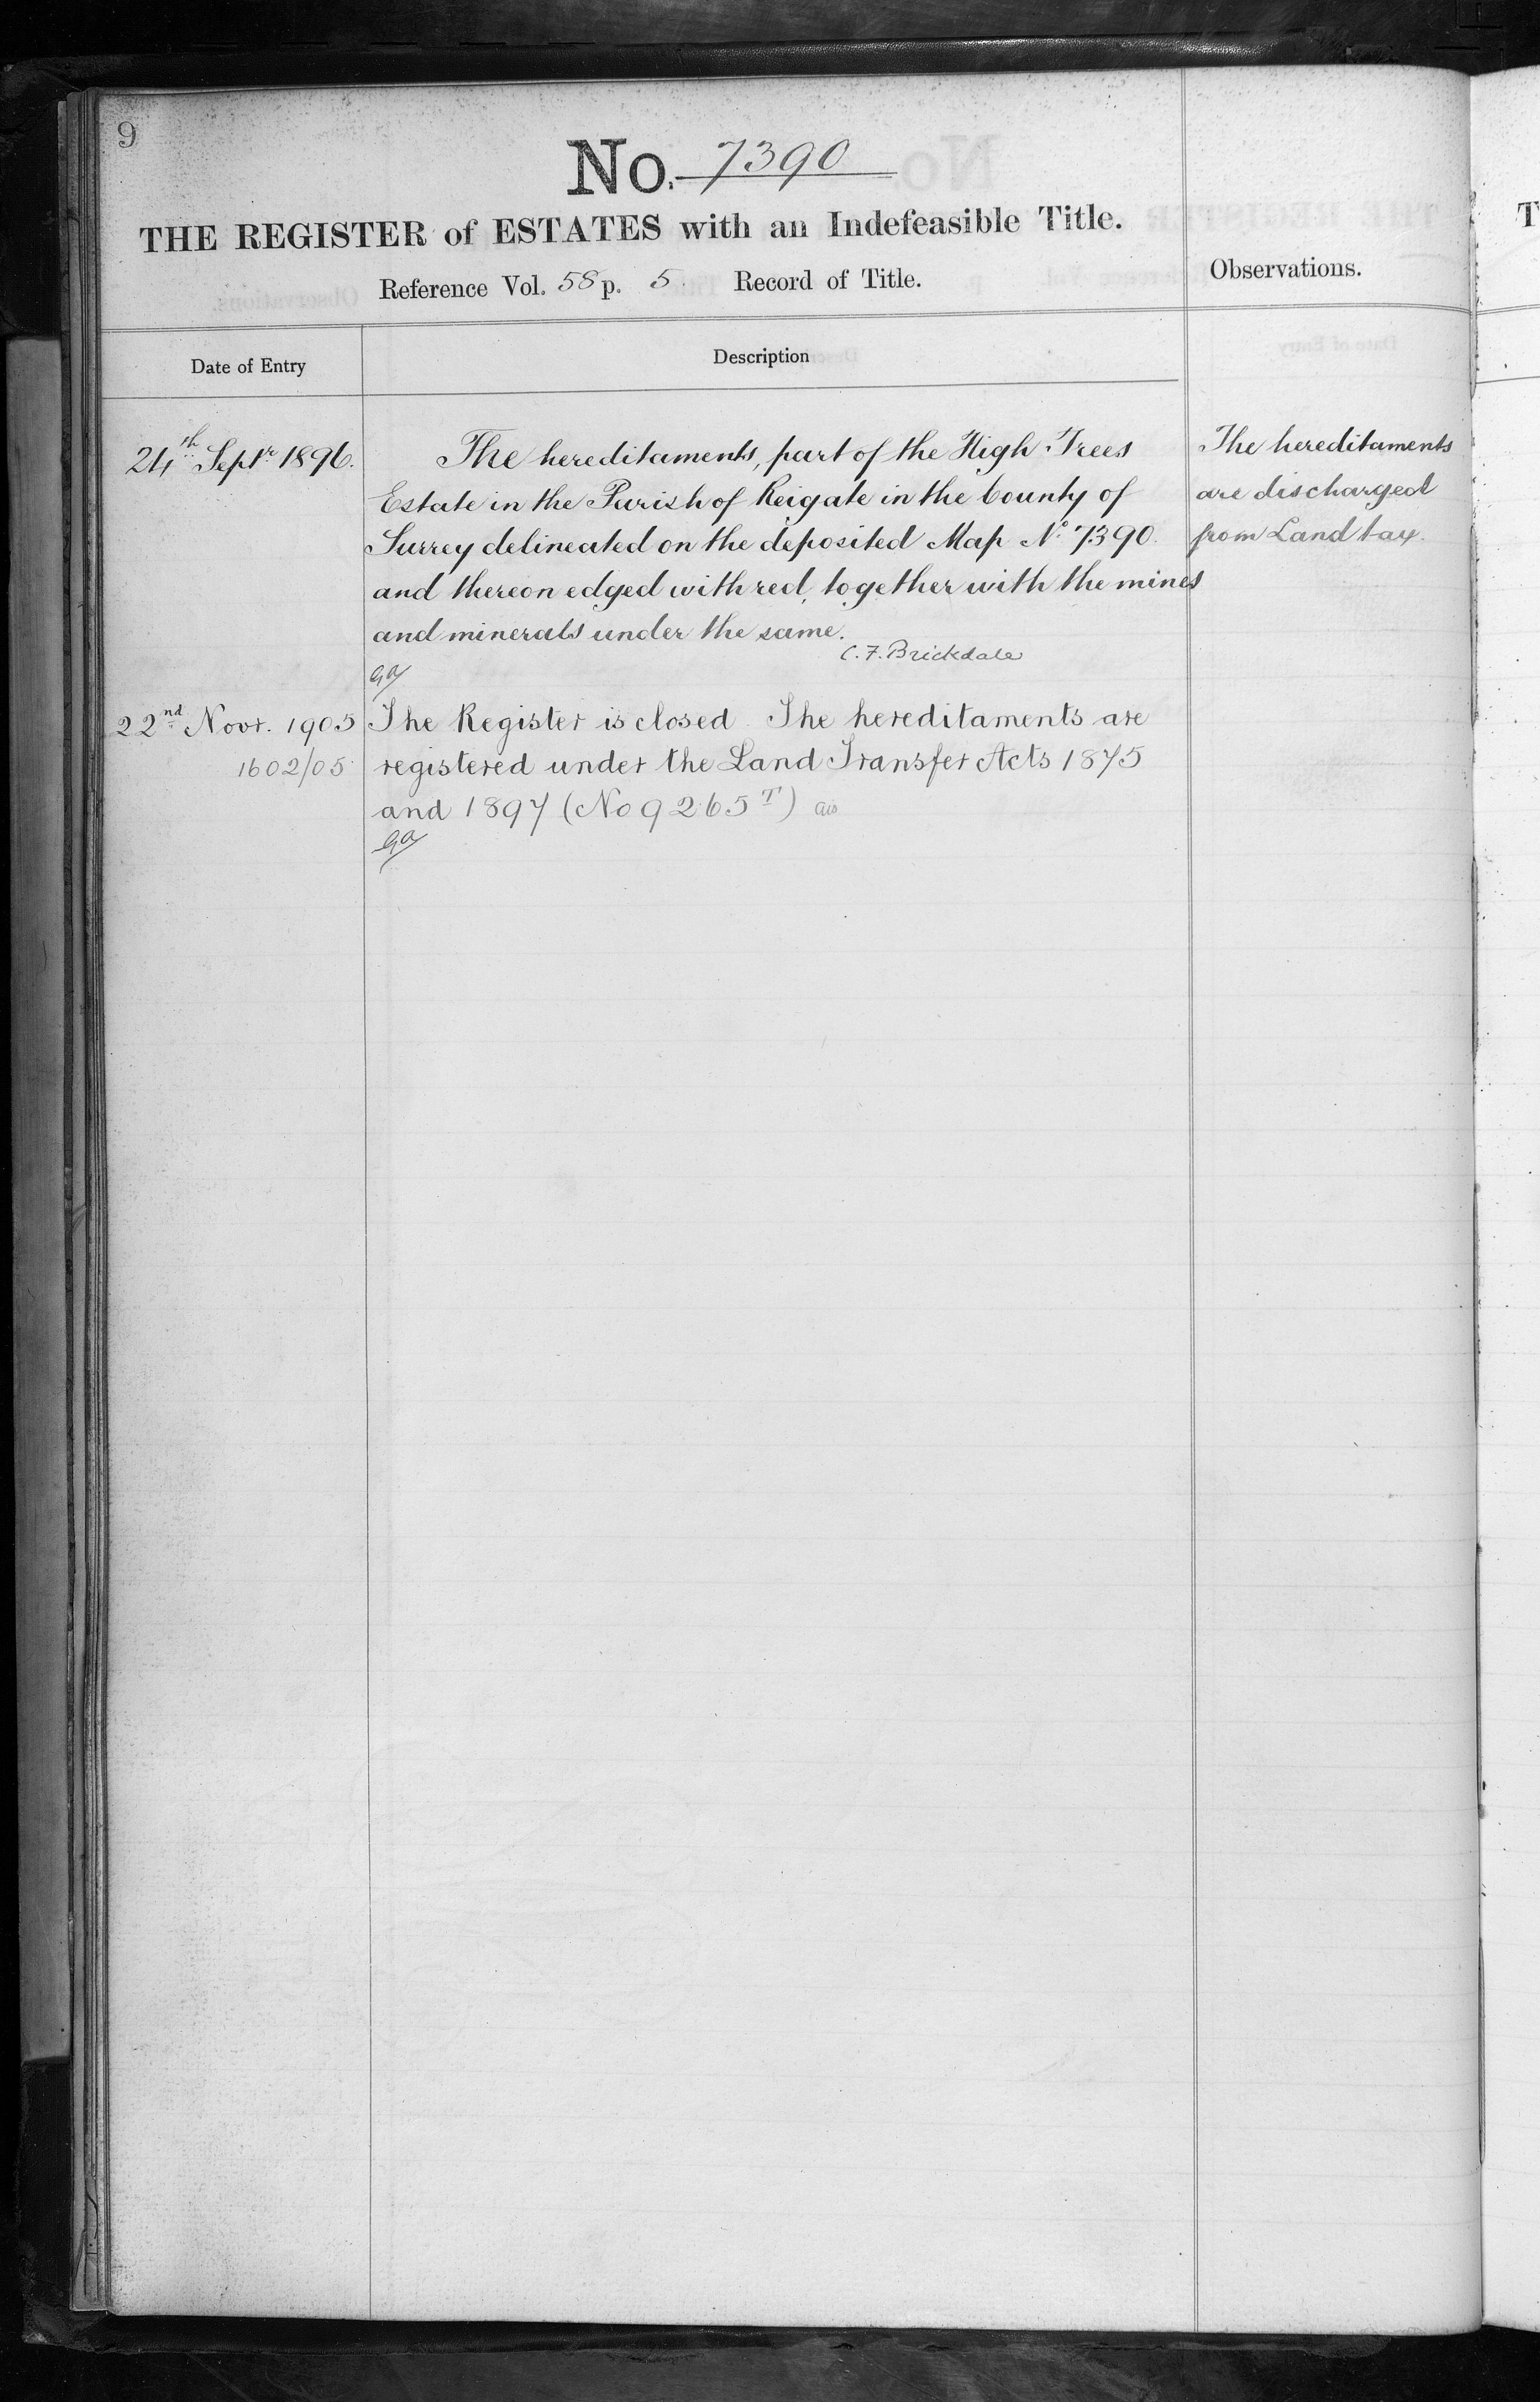 9
No. 7390
THE REGISTER of ESTATES with an Indefeasible Title.
Reference Vol. 58 p. 5 Record of Title.
Observations.
Date of Entry
Description
24th Septr 1896.
The hereditaments, part of the High Trees
Estate in the Parish of Reigate in the County of
Surrey delineated on the deposited Map No 7390.
and thereon edged with red, together with the mines
and minerals under the same.
C. F. Brickdale
The hereditaments
are discharged
from Land tax.
22nd Novr. 1905
1602/05
The Register is closed. The hereditaments are
registered under the Land Transfer Acts 1875
and 1897 (No 9265T)